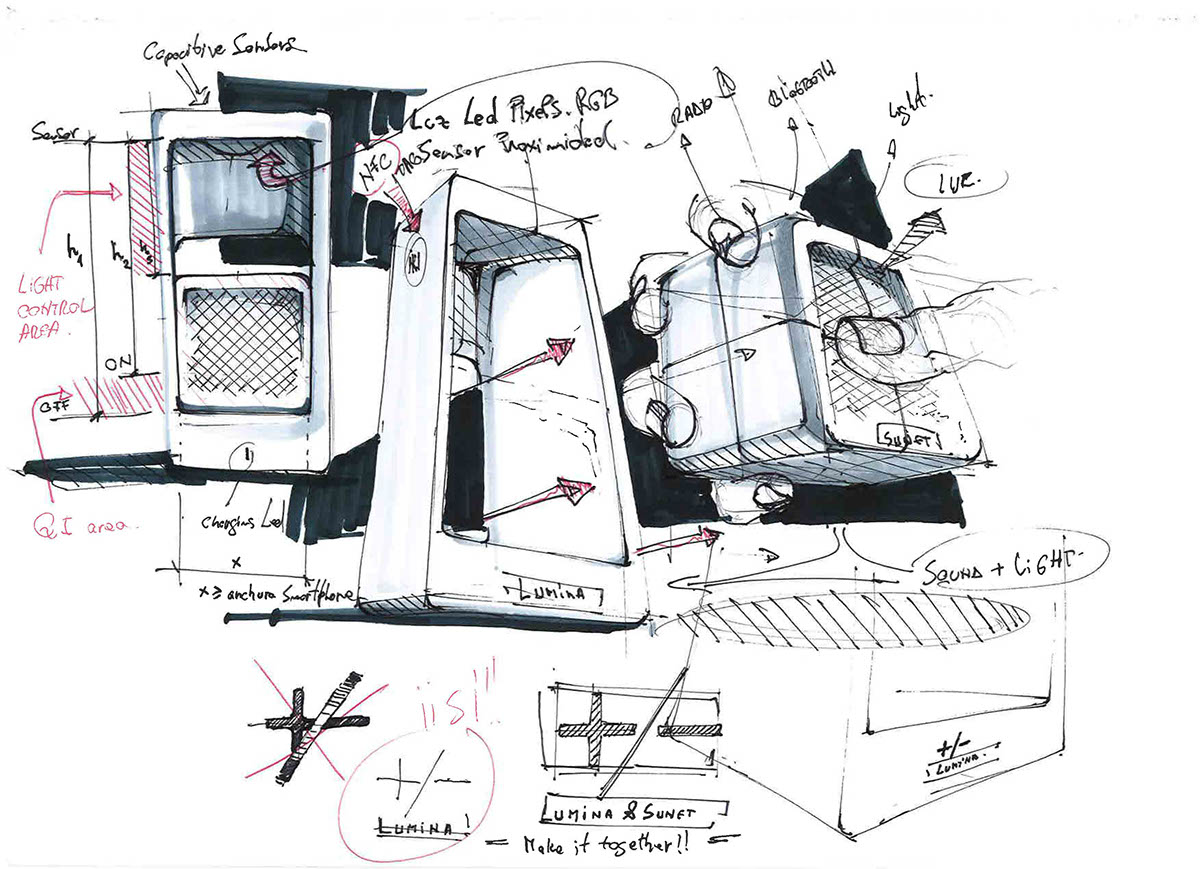 Capacitive Sensors
Sensor
Luz Led Pixels. RGB
Sensor Proximidad.
NFC
RADIO
Bluetooth
Light.
LUZ.
h1
h2
h3
LIGHT
CONTROL
AREA.
ON
OFF
QI area.
Charging Led
x
x ≥ anchura Smartphone
LUMINA
SUNET!
SOUND + LIGHT.
¡¡SI!!
+/-
LUMINA!
LUMINA & SUNET
= Make it together!! =
+/-
LUMINA.